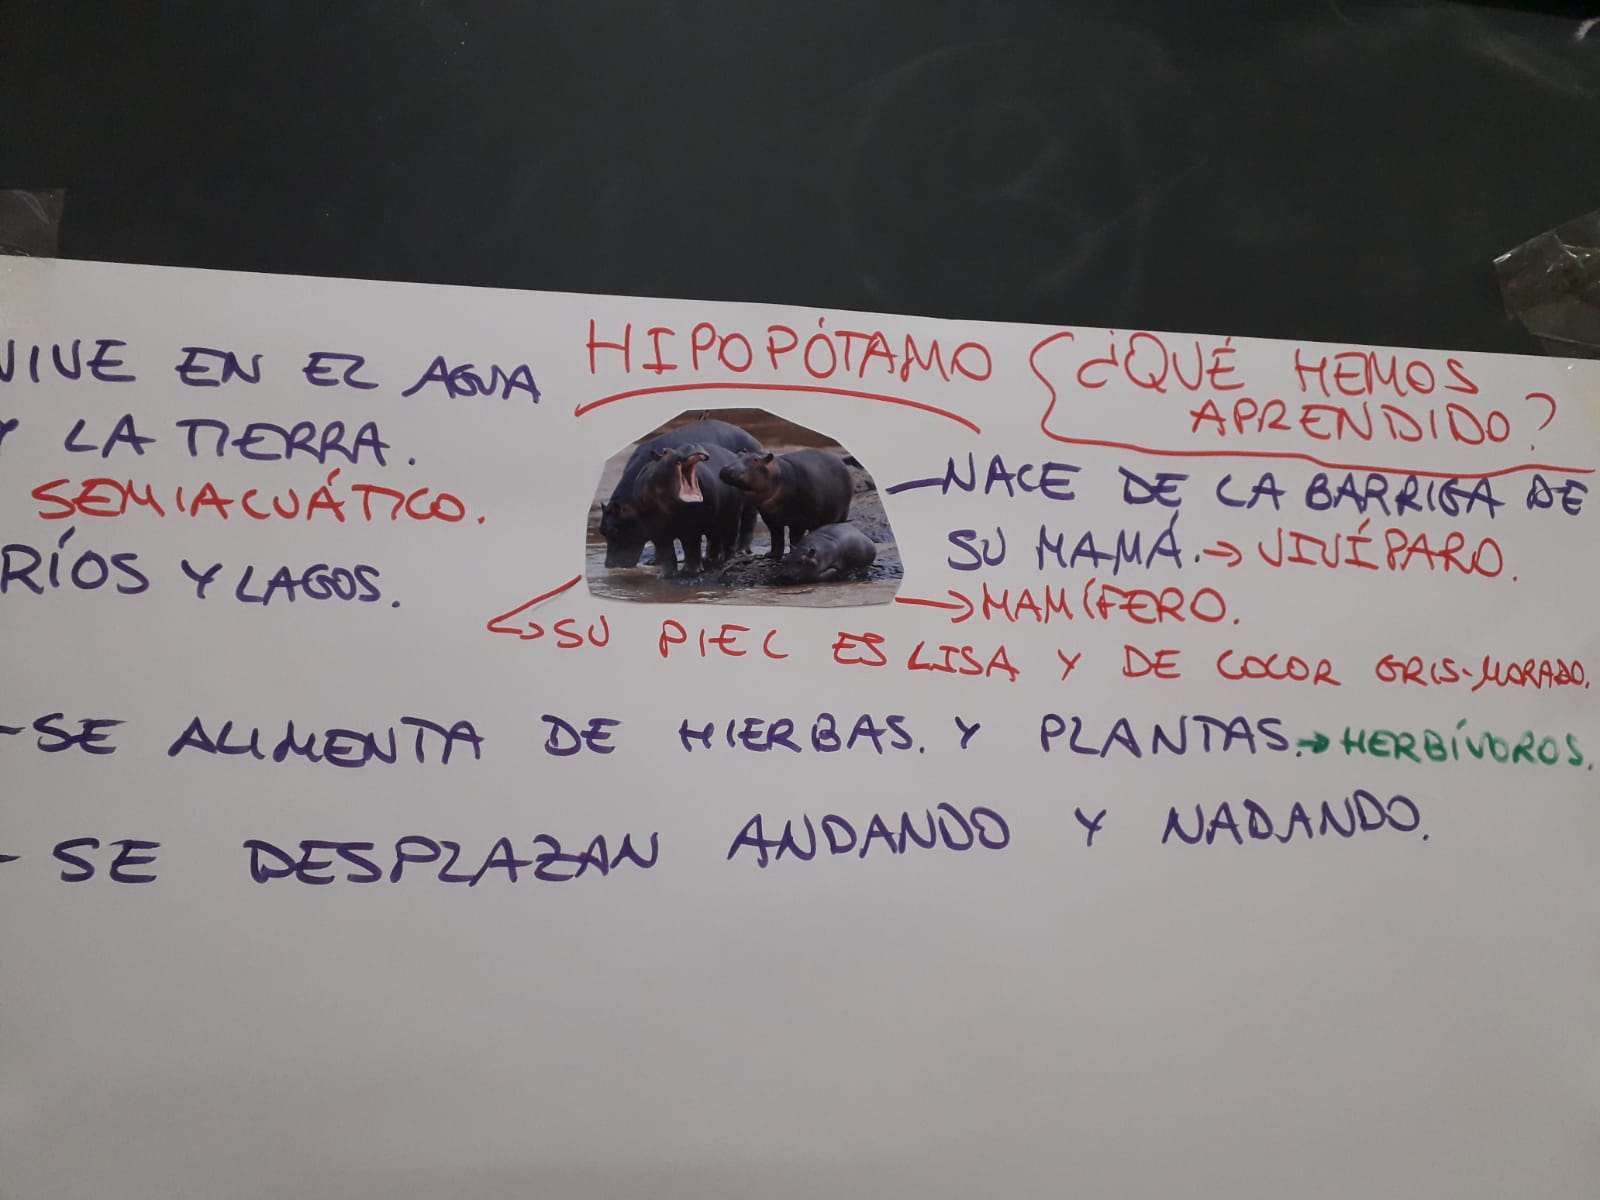 HIPOPÓTAMO
¿QUÉ HEMOS
APRENDIDO?
VIVE EN EL AGUA
Y LA TIERRA.
SEMIACUÁTICO.
RÍOS Y LAGOS.
-NACE DE LA BARRIGA DE
SU MAMÁ. → VIVÍPARO.
→ MAMÍFERO.
→ SU PIEL ES LISA Y DE COLOR GRIS-MORADO.
-SE ALIMENTA DE HIERBAS. Y PLANTAS. → HERBÍVOROS.
- SE DESPLAZAN ANDANDO Y NADANDO.